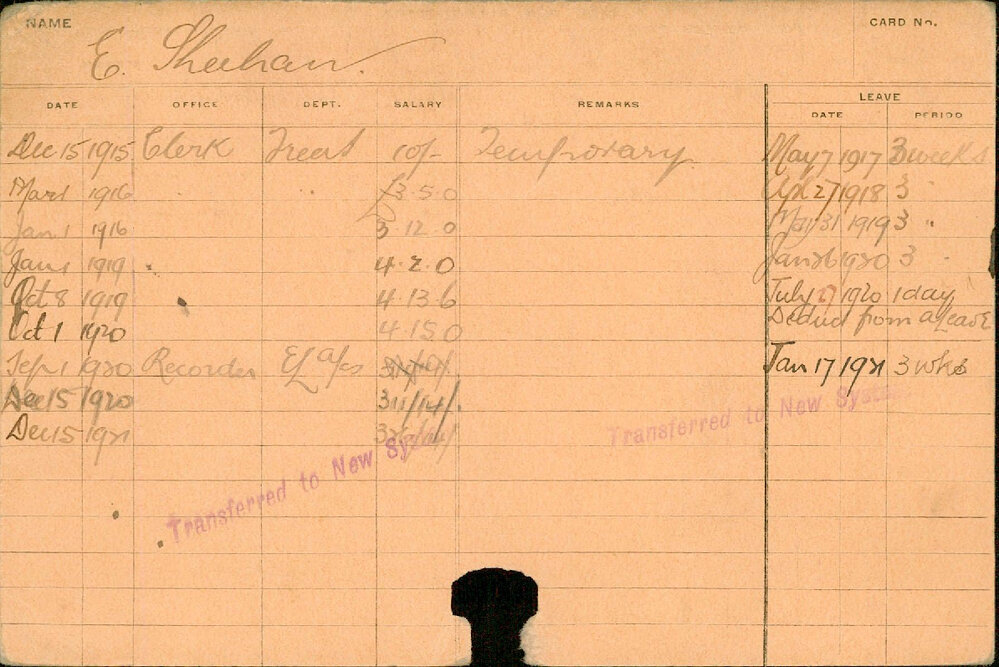 NAME E. Sheehan. CARD No.
DATE OFFICE DEPT. SALARY REMARKS LEAVE
DATE PERIOD
Dec 15 1915 Clerk Treas 10/- Temporary May 7 1917 3 weeks
Mar 1 1916 £3.5.0 Apr 27 1918 3 "
Jan 1 1916 3.12.0 May 31 1919 3 "
Jan 1 1919 4.2.0 Jan 26 1920 3 "
Oct 8 1919 4.13.6 July 1920 1 day
Oct 1 1920 4.15.0 Deduct from a/Leave
Sep 1 1920 Recorder El a/cs Jan 17 1921 3 wks
Dec 15 1920 311/14/.
Dec 15 1921
Transferred to New System
Transferred to New System